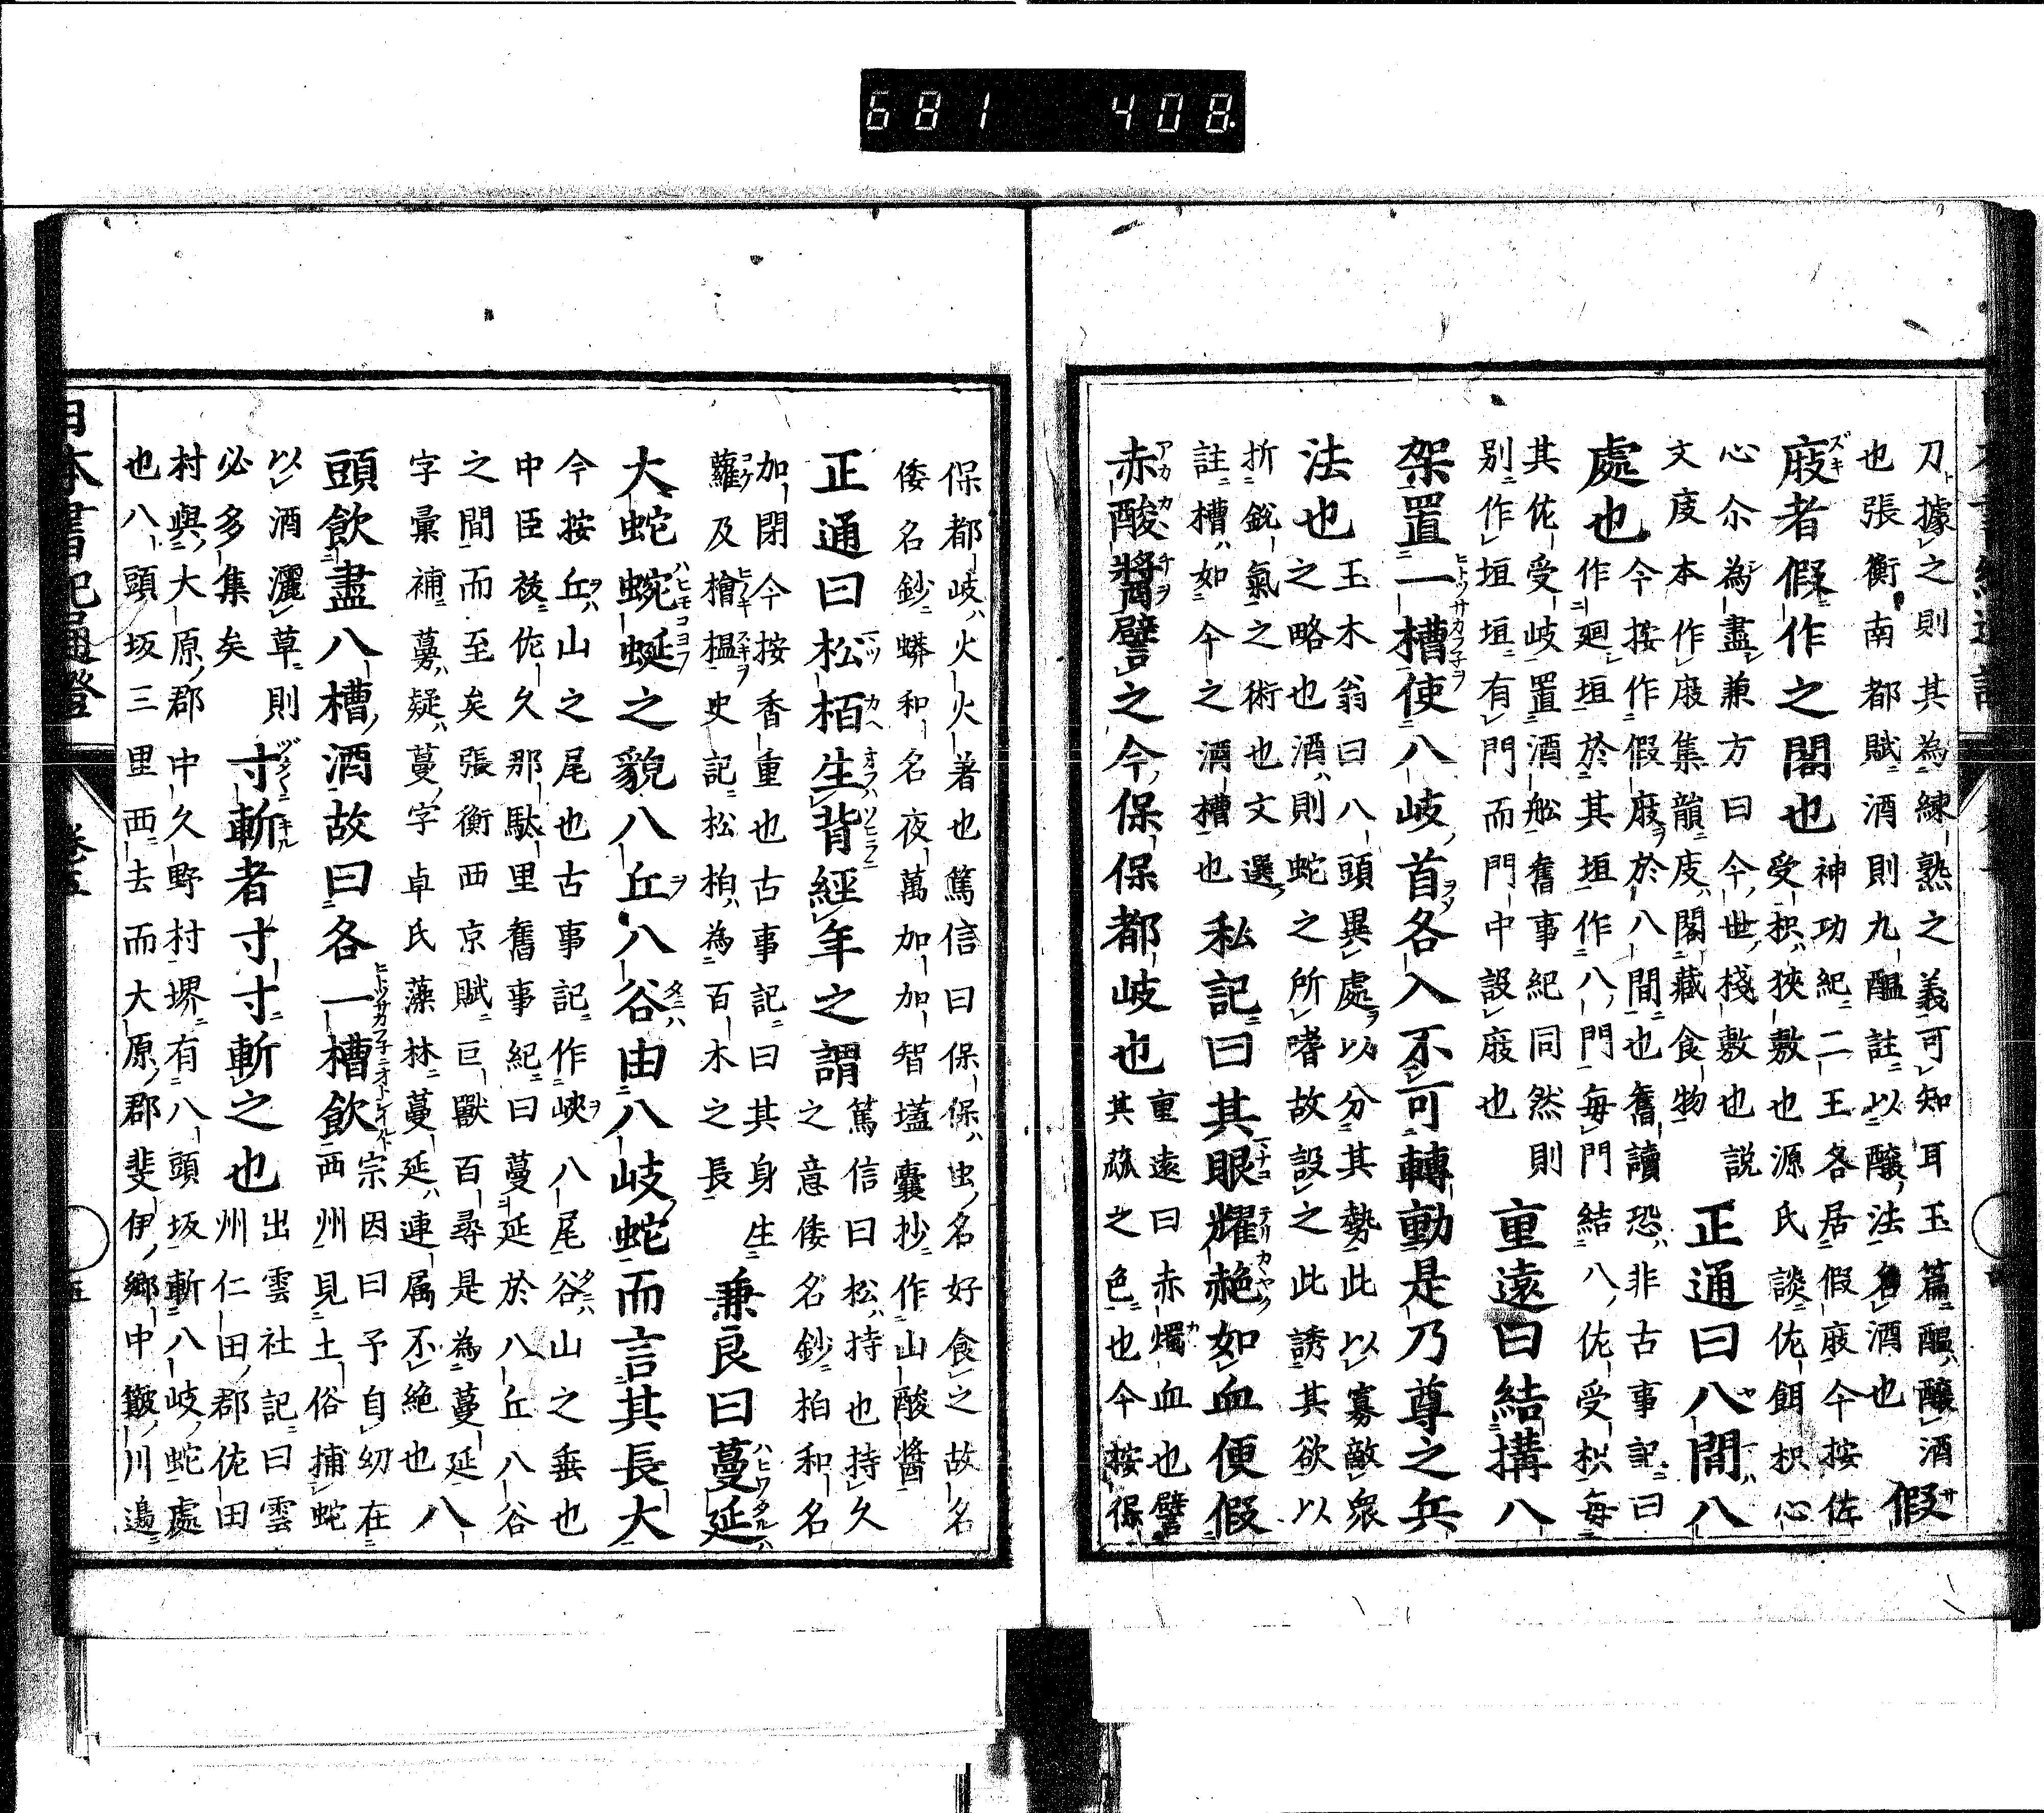 681 408.
刀據之則其為練熟之義可知耳玉篇醞醸酒
也張衡南都賦酒則九醞註以醸法名酒也
假
庪者假作之閣也
神功紀二王各居假庪今按佐
受枳狹敷也源氏談佐餌枳心
心尒為盡兼方曰今世棧敷也説
文庋本作庪集韻庋閣藏食物
正通曰八間八
處也
今按作假庪於八間也舊讀恐非古事記曰
作廻垣於其垣作八門毎門結八佐受枳毎
其佐受岐置酒舩舊事紀同然則
別作垣垣有門而門中設庪也
重遠曰結搆八
架置一槽使八岐首各入不可轉動是乃尊之兵
法也
玉木翁曰八頭異處以分其勢此以寡敵衆
之略也酒則蛇之所嗜故設之此誘其欲以
折鋭氣之術也文選
註槽如今之酒槽也
私記曰其眼耀赩如血便假
赤酸醬譬之今保保都岐也
重遠曰赤燭血也譬
其疏之色也今按保
保都岐火火著也篤信曰保保虫名好食之故名
倭名鈔蟒和名夜萬加加智壒囊抄作山酸醬
正通曰松栢生背經年之謂
篤信曰松持也持久
之意倭名鈔柏和名
加閉今按香重也古事記曰其身生
蘿及檜榲史記松柏為百木之長
兼良曰蔓延
大蛇蜿蜒之貌八丘八谷由八岐蛇而言其長大
今按丘山之尾也古事記作峽八尾谷山之垂也
中臣祓佐久那駄里舊事紀曰蔓延於八丘八谷
之間而至矣張衡西京賦巨獸百尋是為蔓延
字彙補蔓疑蔓字卓氏藻林蔓延連属不絶也
八
頭飲盡八槽酒故曰各一槽飲
宗因曰予自幼在
西州見土俗捕蛇
以酒灑草則
必多集矣
寸斬者寸寸斬之也
出雲社記曰雲
州仁田郡佐田
村與大原郡中久野村堺有八頭坂斬八岐蛇處
也八頭坂三里西去而大原郡斐伊郷中簸川邊
日本書紀通證
卷五